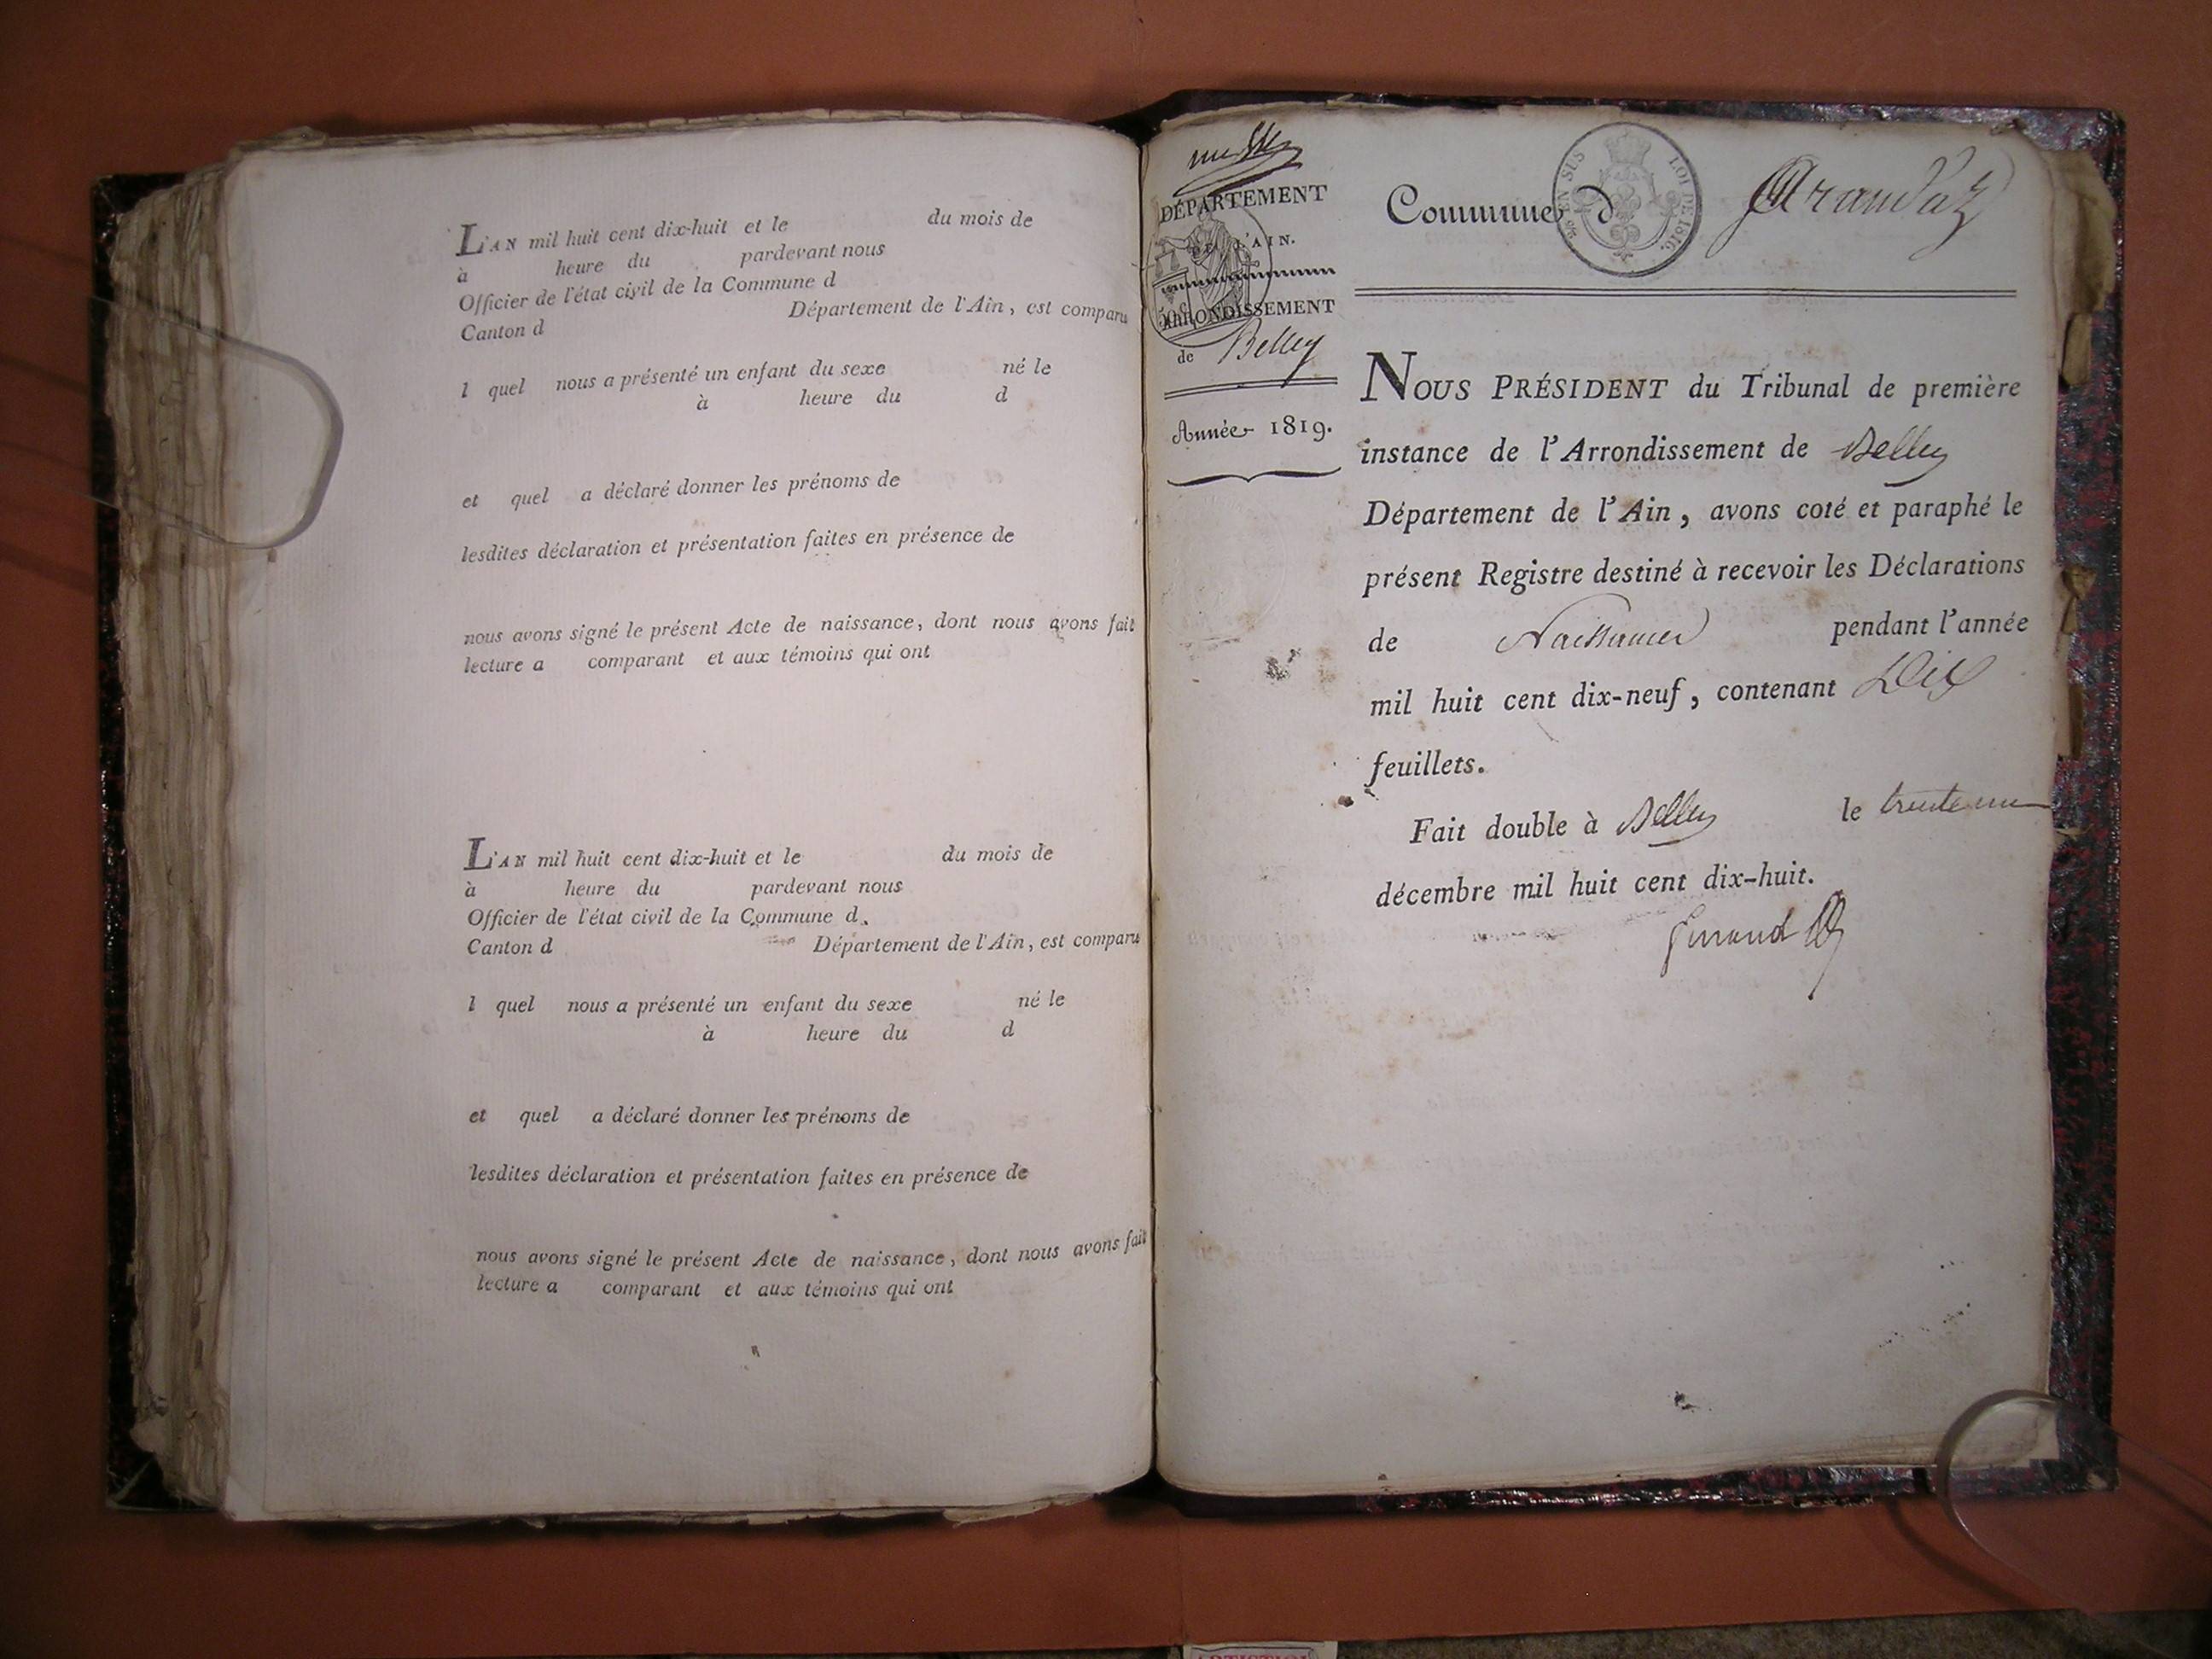 L'AN mil huit cent dix-huit et le du mois de
à heure du pardevant nous
Officier de l'état civil de la Commune d
Canton d Département de l'Ain, est comparu
l quel nous a présenté un enfant du sexe né le
à heure du d
et quel a déclaré donner les prénoms de
lesdites déclaration et présentation faites en présence de
nous avons signé le présent Acte de naissance, dont nous avons fait
lecture a comparant et aux témoins qui ont
L'AN mil huit cent dix-huit et le du mois de
à heure du pardevant nous
Officier de l'état civil de la Commune d
Canton d Département de l'Ain, est comparu
l quel nous a présenté un enfant du sexe né le
à heure du d
et quel a déclaré donner les prénoms de
lesdites déclaration et présentation faites en présence de
nous avons signé le présent Acte de naissance, dont nous avons fait
lecture a comparant et aux témoins qui ont
DÉPARTEMENT
DE L'AIN.
ARRONDISSEMENT
de Belley
Année 1819.
Commune d Arandaz
EN SUS LOI DE 1816.
NOUS PRÉSIDENT du Tribunal de première
instance de l'Arrondissement de Belley
Département de l'Ain, avons coté et paraphé le
présent Registre destiné à recevoir les Déclarations
de Naissances pendant l'année
mil huit cent dix-neuf, contenant Dix
feuillets.
Fait double à Belley le trente un
décembre mil huit cent dix-huit.